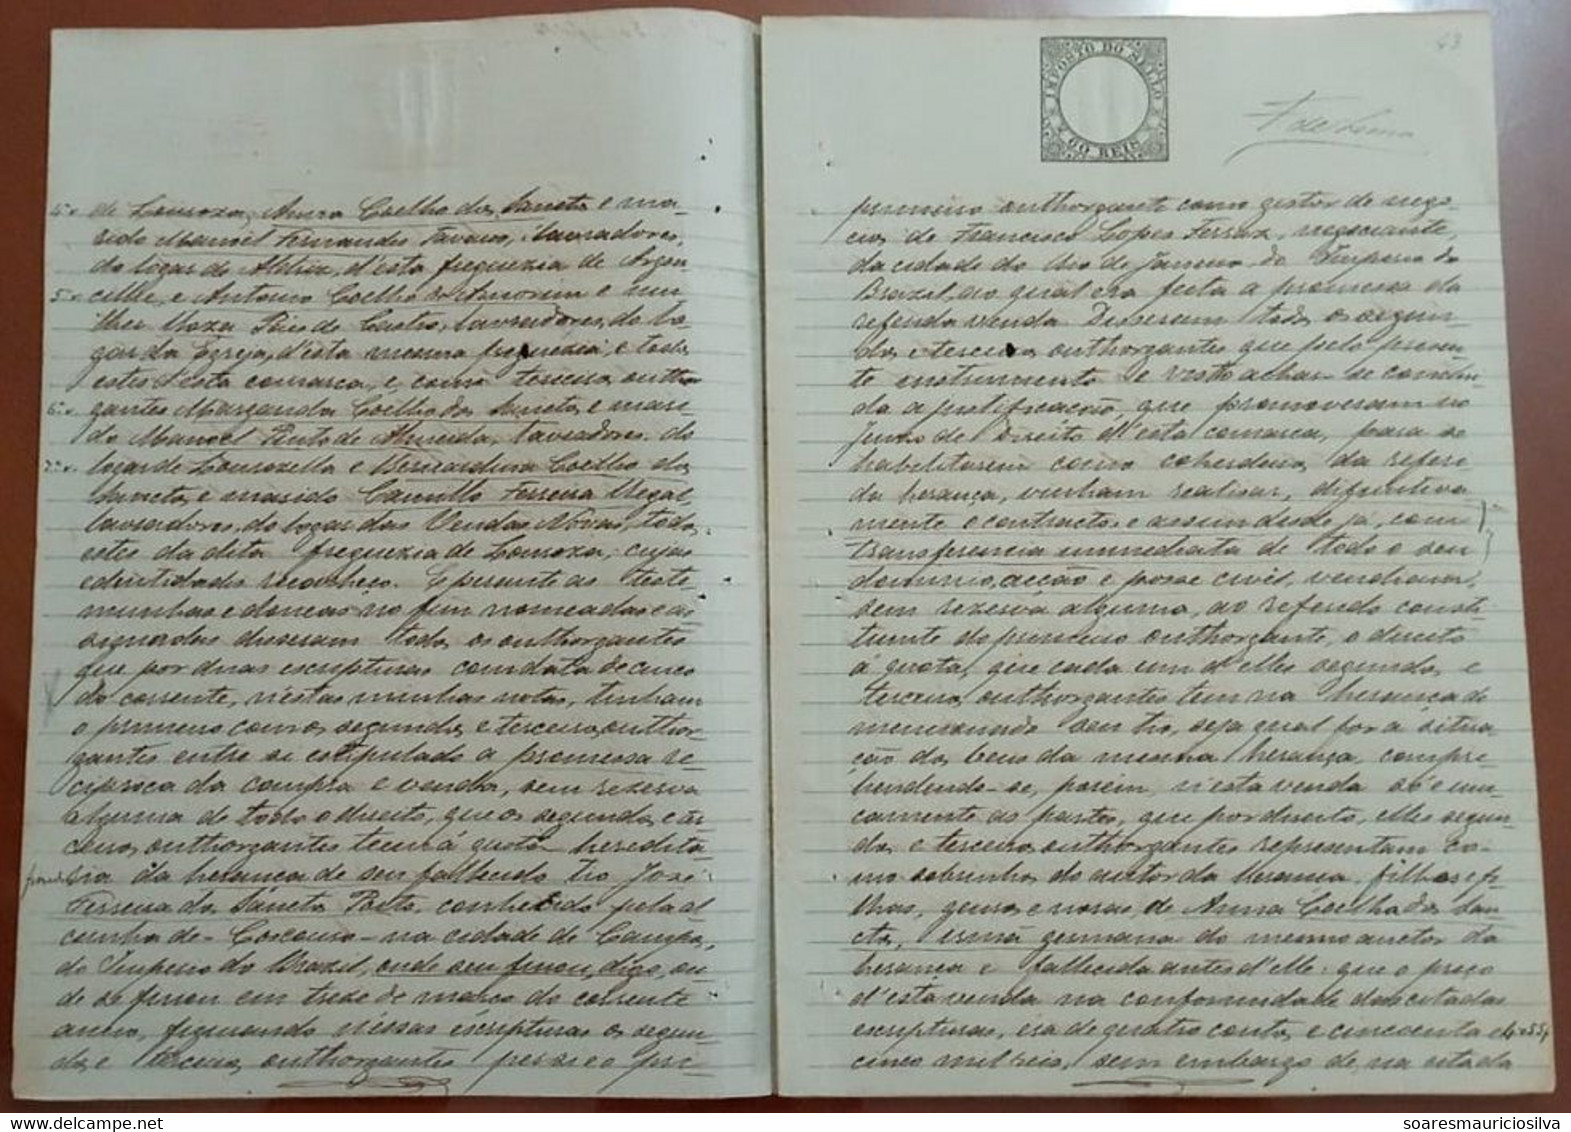 4.º de Louroza, Anna Coelho dos Sanctos e ma-
rido Manoel Fernandes Tavares, lavradores,
do logar de Aldriz, d'esta freguezia de Argon
5.º cilhe, e Antonio Coelho de Amorim e mu
lher Roza Pães de Castro, lavradores, do lo-
gar da Egreja, d'esta mesma freguezia, e todos
estes d'esta comarca, e como terceiros outhor
6.º gantes Margarida Coelho dos Sanctos e mari-
do Manoel Pinto de Almeida, lavradores, do
7.º logar de Lourozella e Bernardina Coelho dos
Sanctos e marido Camillo Ferreira Regal
lavradores, do logar das Vendas Novas, todos
estes da dita freguezia de Louroza; cujas
edentidades reconheço. E perante as teste-
munhas edoneas no fim nomeadas e as
signadas disseram todos os outhorgantes
que por duas escripturas com data de cinco
do corrente, n'estas minhas notas, tinham
o primeiro com os segundos e terceiros outhor-
gantes entre si estipulado a promessa re-
ciproca da compra e venda, sem rezerva
alguma de todo o direito, que os segundos e ter-
ceiros outhorgantes teem á quota heredita-
ria da herança de seu fallecido tio José
Ferreira dos Sanctos Porto, conhecido pela al
cunha de - Coscouro - na cidade de Campos,
do Imperio do Brazil, onde seu finou, digo, on-
de se finou em treze de março do corrente
anno, figurando n'essas escripturas os segun-
dos e terceiros outhorgantes perante o pri-
43
IMPOSTO DO SELLO
60 REIS
primeiro outhorgante como gestor de nego-
cios de Francisco Lopes Ferraz, negociante,
da cidade do Rio de Janeiro, do Imperio do
Brazil, ao qual era feita a promessa da
referida venda. Disseram todos os segun-
dos e terceiros outhorgantes que pelo presen-
te instrumento e visto achar-se conclui-
da a justificação, que promoveram no
Juizo de Direito d'esta comarca, para se
habilitarem como coherdeiros da referi-
da herança, vinham realisar, difinitiva
mente o contracto, e assim desde já, com
transferencia immediata de todo o seu
dominio, acção e posse civil, vendiam,
sem rezerva alguma, ao referido consti-
tuinte do primeiro outhorgante, o direito
á quota, que cada um d'elles segundos e
terceiros outhorgantes tem na herança do
mencionado seu tio, seja qual for a situa
ção dos bens da mesma herança, compre-
hendendo-se, porém, n'esta venda só e uni-
camente as partes, que por direito, elles segun-
dos e terceiros outhorgantes representam co-
mo sobrinhos do auctor da herança, filhos e fi-
lhas, genros e noras de Anna Coelha dos San-
ctos, irmã germana do mesmo auctor da
herança e fallecida antes d'elle: que o preço
d'esta venda na conformidade das citadas
escripturas, era de quatro contos e cincoenta e
cinco mil reis, sem embargo de, na estada